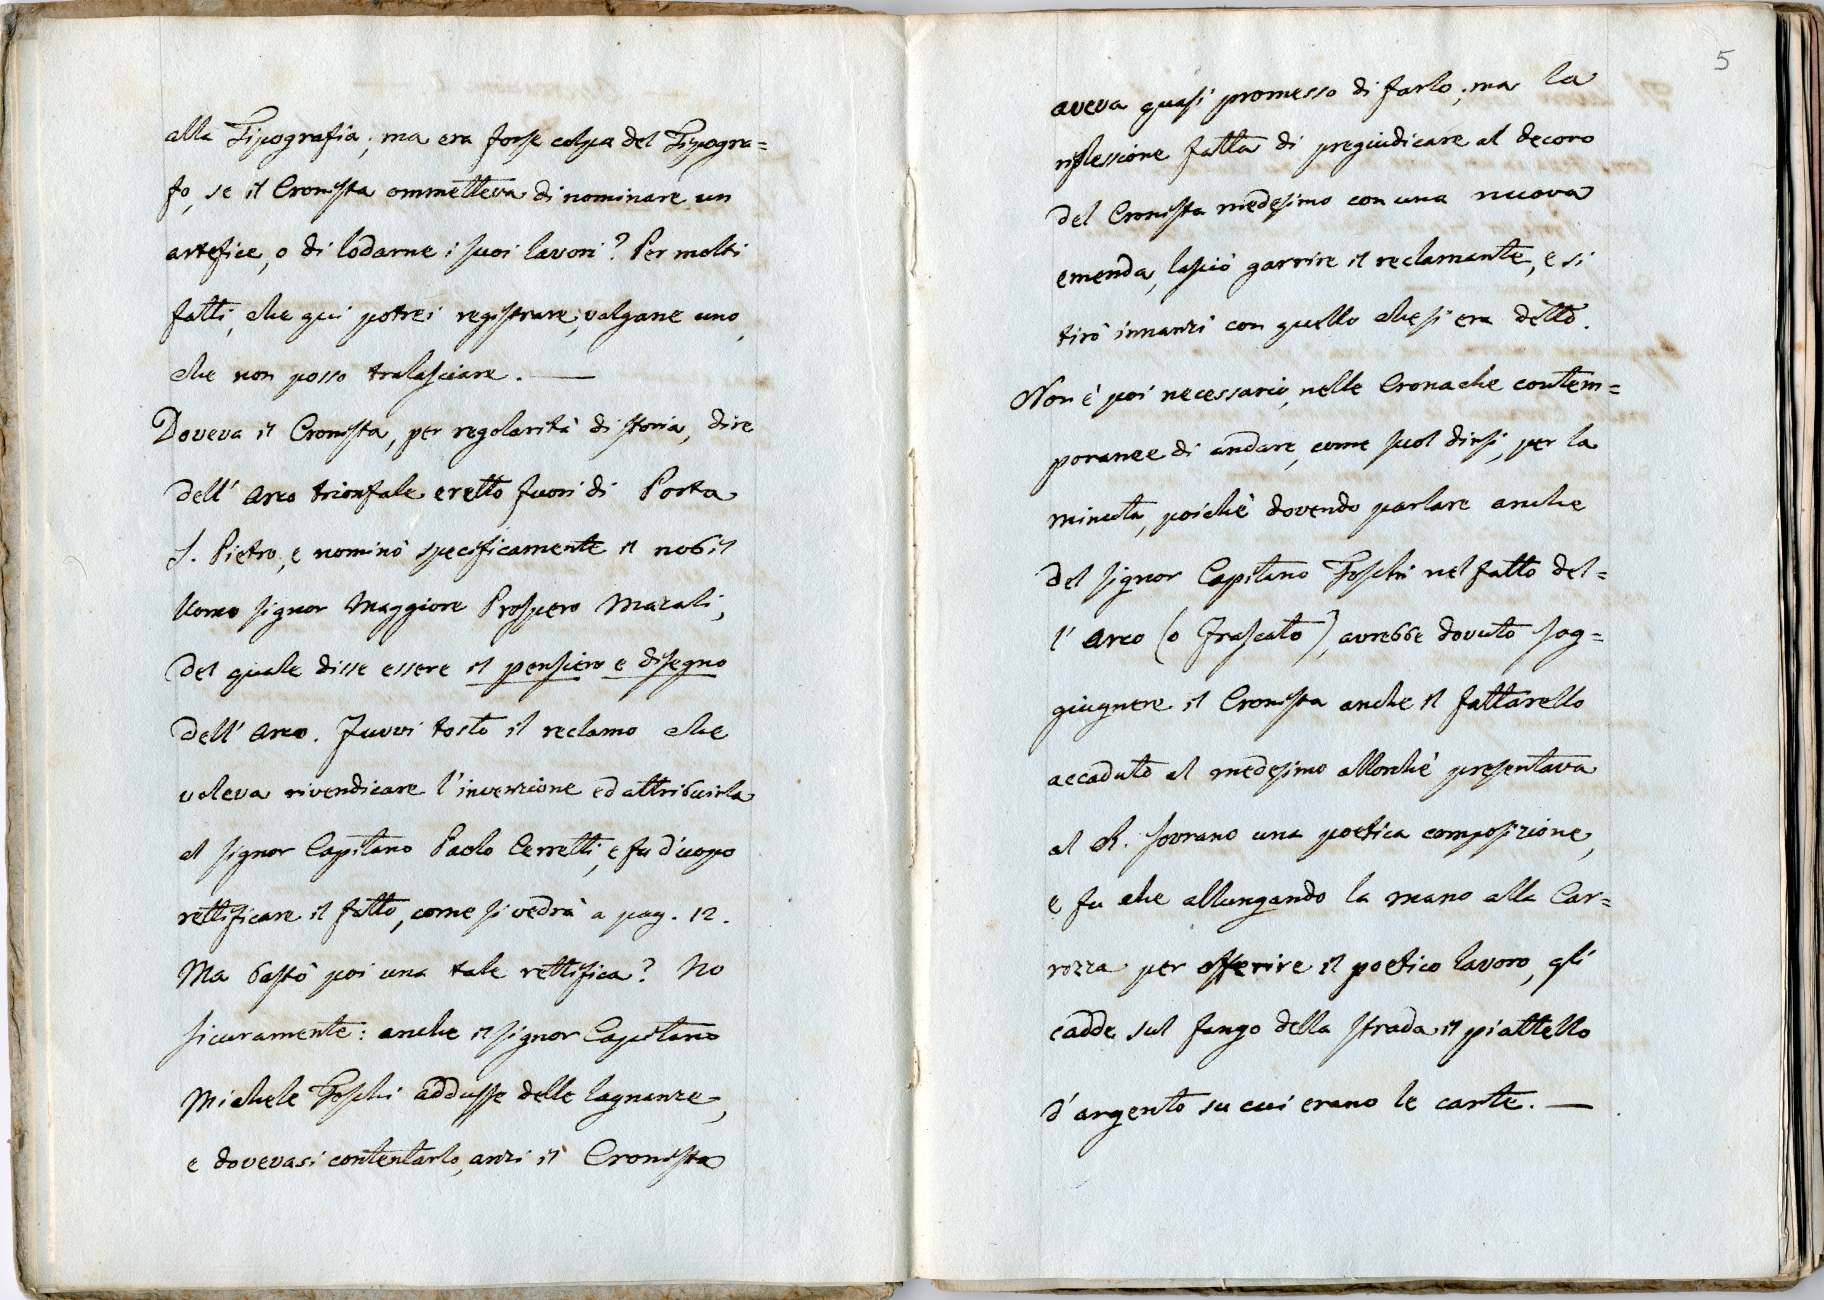 alla Tipografia; ma era forse colpa del Tipogra=
fo, se il Cronista ommetteva di nominare un
artefice, o di lodarne i suoi lavori? Per molti
fatti, che qui potrei registrare, valgane uno,
che non posso tralasciare. —
Doveva il Cronista, per regolarità di storia, dire
dell' Arco trionfale eretto fuori di Porta
S. Pietro, e nominò specificamente il nobil
Uomo signor Maggiore Prospero Mazali,
del quale disse essere il pensiero e disegno
dell' Arco. Fuvvi tosto il reclamo che
voleva rivendicare l'invenzione ed attribuirla
al signor Capitano Paolo Cerretti, e fu d'uopo
rettificare il fatto, come si vedrà a pag. 12.
Ma bastò poi una tale rettifica? No
sicuramente: anche il signor Capitano
Michele Foschi addusse delle lagnanze,
e dovevasi contentarlo, anzi il Cronista
5
aveva quasi promesso di farlo; ma la
riflessione fatta di pregiudicare al decoro
del Cronista medesimo con una nuova
emenda, lasciò garrire il reclamante, e si
tirò innanzi con quello che si era detto.
Non è poi necessario, nelle Cronache contem=
poranee di andare, come suol dirsi, per la
minuta, poichè dovendo parlare anche
del signor Capitano Foschi nel fatto del=
l' Arco (o Frascato), avrebbe dovuto sog=
giugnere il Cronista anche il fattarello
accaduto al medesimo allorchè presentava
al R. Sovrano una poetica composizione,
e fu che allungando la mano alla Car=
rozza per offerire il poetico lavoro, gli
cadde sul fango della strada il piattello
d'argento su cui erano le carte. —